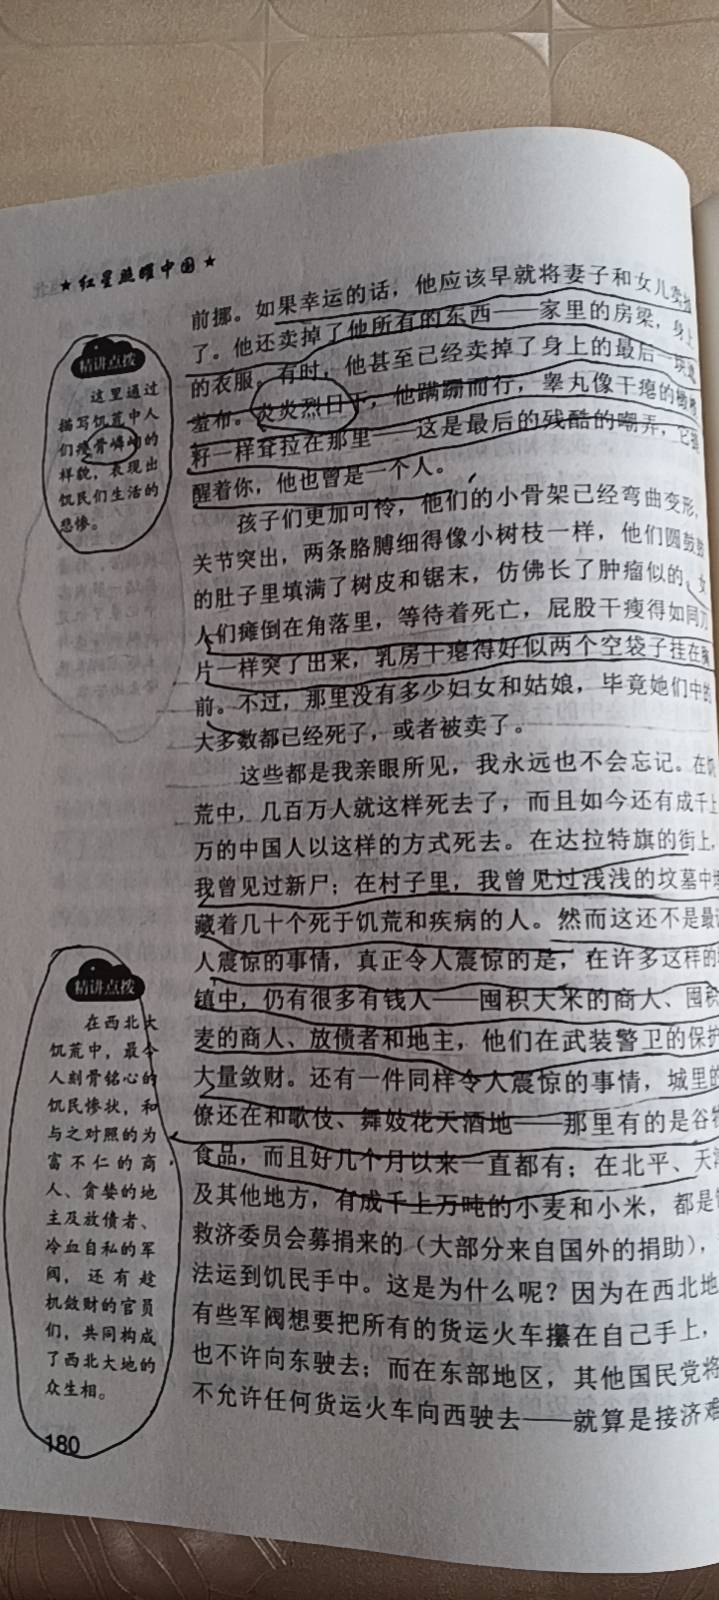 ★红星照耀中国★
前挪。如果幸运的话，他应该早就将妻子和女儿卖掉
了。他还卖掉了他所有的东西——家里的房梁，身上
的衣服。有时，他甚至已经卖掉了身上的最后一块遮
羞布。炎炎烈日下，他蹒跚而行，睾丸像干瘪的橄榄
籽一样耷拉在那里——这是最后的残酷的嘲弄，它提
醒着你，他也曾是一个人。
孩子们更加可怜，他们的小骨架已经弯曲变形，
关节突出，两条胳膊细得像小树枝一样，他们圆鼓鼓
的肚子里填满了树皮和锯末，仿佛长了肿瘤似的。女
人们瘫倒在角落里，等待着死亡，屁股干瘦得如同刀
片一样突了出来，乳房干瘪得好似两个空袋子挂在胸
前。不过，那里没有多少妇女和姑娘，毕竟她们中的
大多数都已经死了，或者被卖了。
这些都是我亲眼所见，我永远也不会忘记。在饥
荒中，几百万人就这样死去了，而且如今还有成千上
万的中国人以这样的方式死去。在达拉特旗的街上，
我曾见过新尸；在村子里，我曾见过浅浅的坟墓中埋
藏着几十个死于饥荒和疾病的人。然而这还不是最
人震惊的事情，真正令人震惊的是，在许多这样的
镇中，仍有很多有钱人——囤积大米的商人、囤积
麦的商人、放债者和地主，他们在武装警卫的保护
大量敛财。还有一件同样令人震惊的事情，城里的
僚还在和歌伎、舞妓花天酒地——那里有的是谷物
食品，而且好几个月以来一直都有；在北平、天津
及其他地方，有成千上万吨的小麦和小米，都是
救济委员会募捐来的（大部分来自国外的捐助），
法运到饥民手中。这是为什么呢？因为在西北地
有些军阀想要把所有的货运火车攥在自己手上，
也不许向东驶去；而在东部地区，其他国民党将
不允许任何货运火车向西驶去——就算是接济难
精讲点拨
这里通过
描写饥荒中人
们瘦骨嶙峋的
样貌，表现出
饥民们生活的
悲惨。
精讲点拨
在西北大
饥荒中，最令
人刻骨铭心的
饥民惨状，和
与之对照的为
富不仁的商
人、贪婪的地
主及放债者、
冷血自私的军
阀，还有趁
机敛财的官员
们，共同构成
了西北大地的
众生相。
180